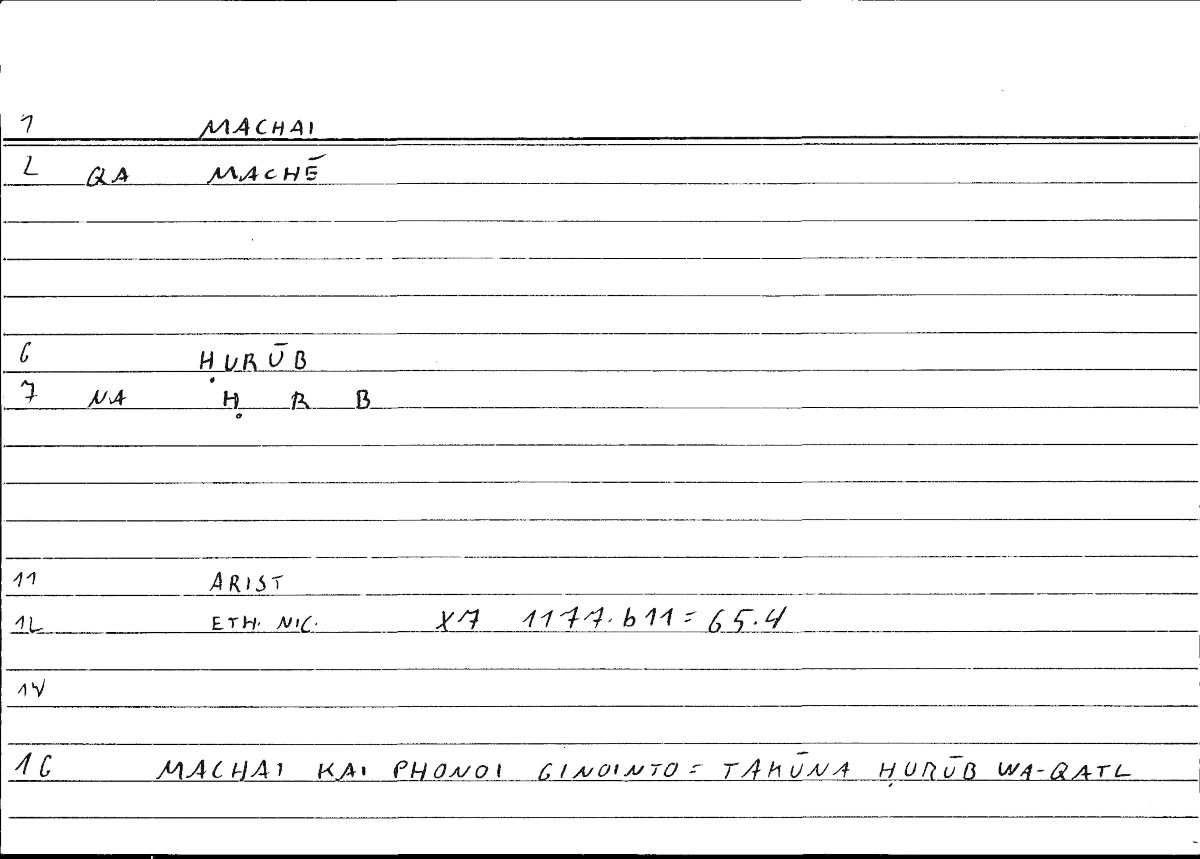 1 MACHAI
2 QA MACHĒ
6 ḤURŪB
7 NA Ḥ R B
11 ARIST
12 ETH. NIC. X7 1177.b11 = 65.4
14
16 MACHAI KAI PHONOI GINOINTO = TAKŪNA ḤURŪB WA-QATL